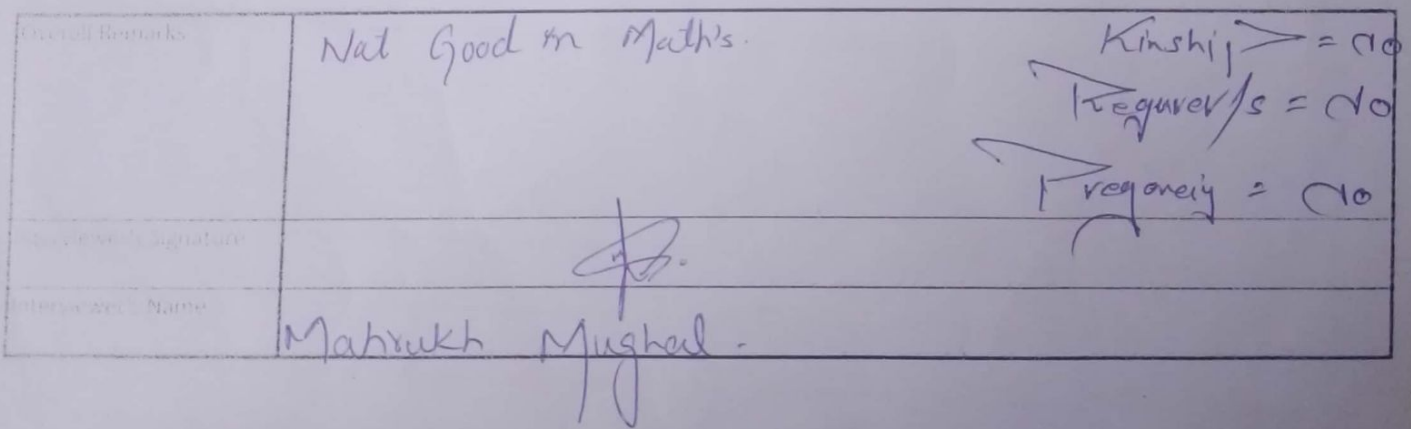 Overall Remarks
Nat Good in Math's.
Kinship = No
= No
Pregnancy = No
Interviewer's Signature
Interviewer's Name
Mahrukh Mughal.